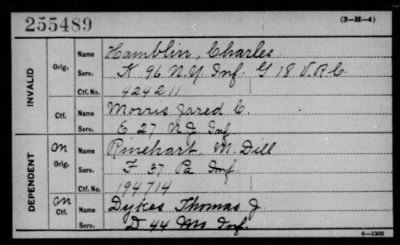 255489
(3-H-4)
INVALID
Orig.
Name Hamblin, Charles
Serv. K 96 N.Y. Inf. G 18 V.R.C.
Ctf. No. 424211
Ctf.
Name Morris Jared C.
Serv. E 27 N J Inf
DEPENDENT
on
Orig.
Name Rinehart M. Dill
Serv. F 37 Pa Inf
Ctf. No. 194714
on
Ctf.
Name Dykes Thomas J.
Serv. D 44 Mo Inf.